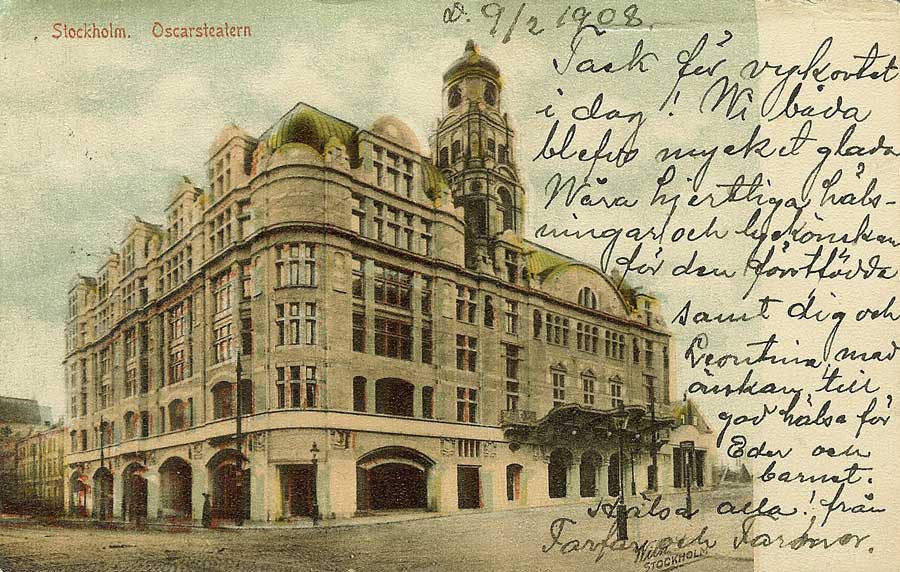 Stockholm. Oscarsteatern
d. 9/2 1908.
Tack för vykortet
i dag! Wi båda
blefvo mycket glada
Wåra hjertliga häls-
ningar och lyckönskan
för den förstfödda
samt dig och
Leontina, med
önskan till
god hälsa för
Eder och
barnet.
Hälsa alla! från
Farfar och Farmor.
STOCKHOLM